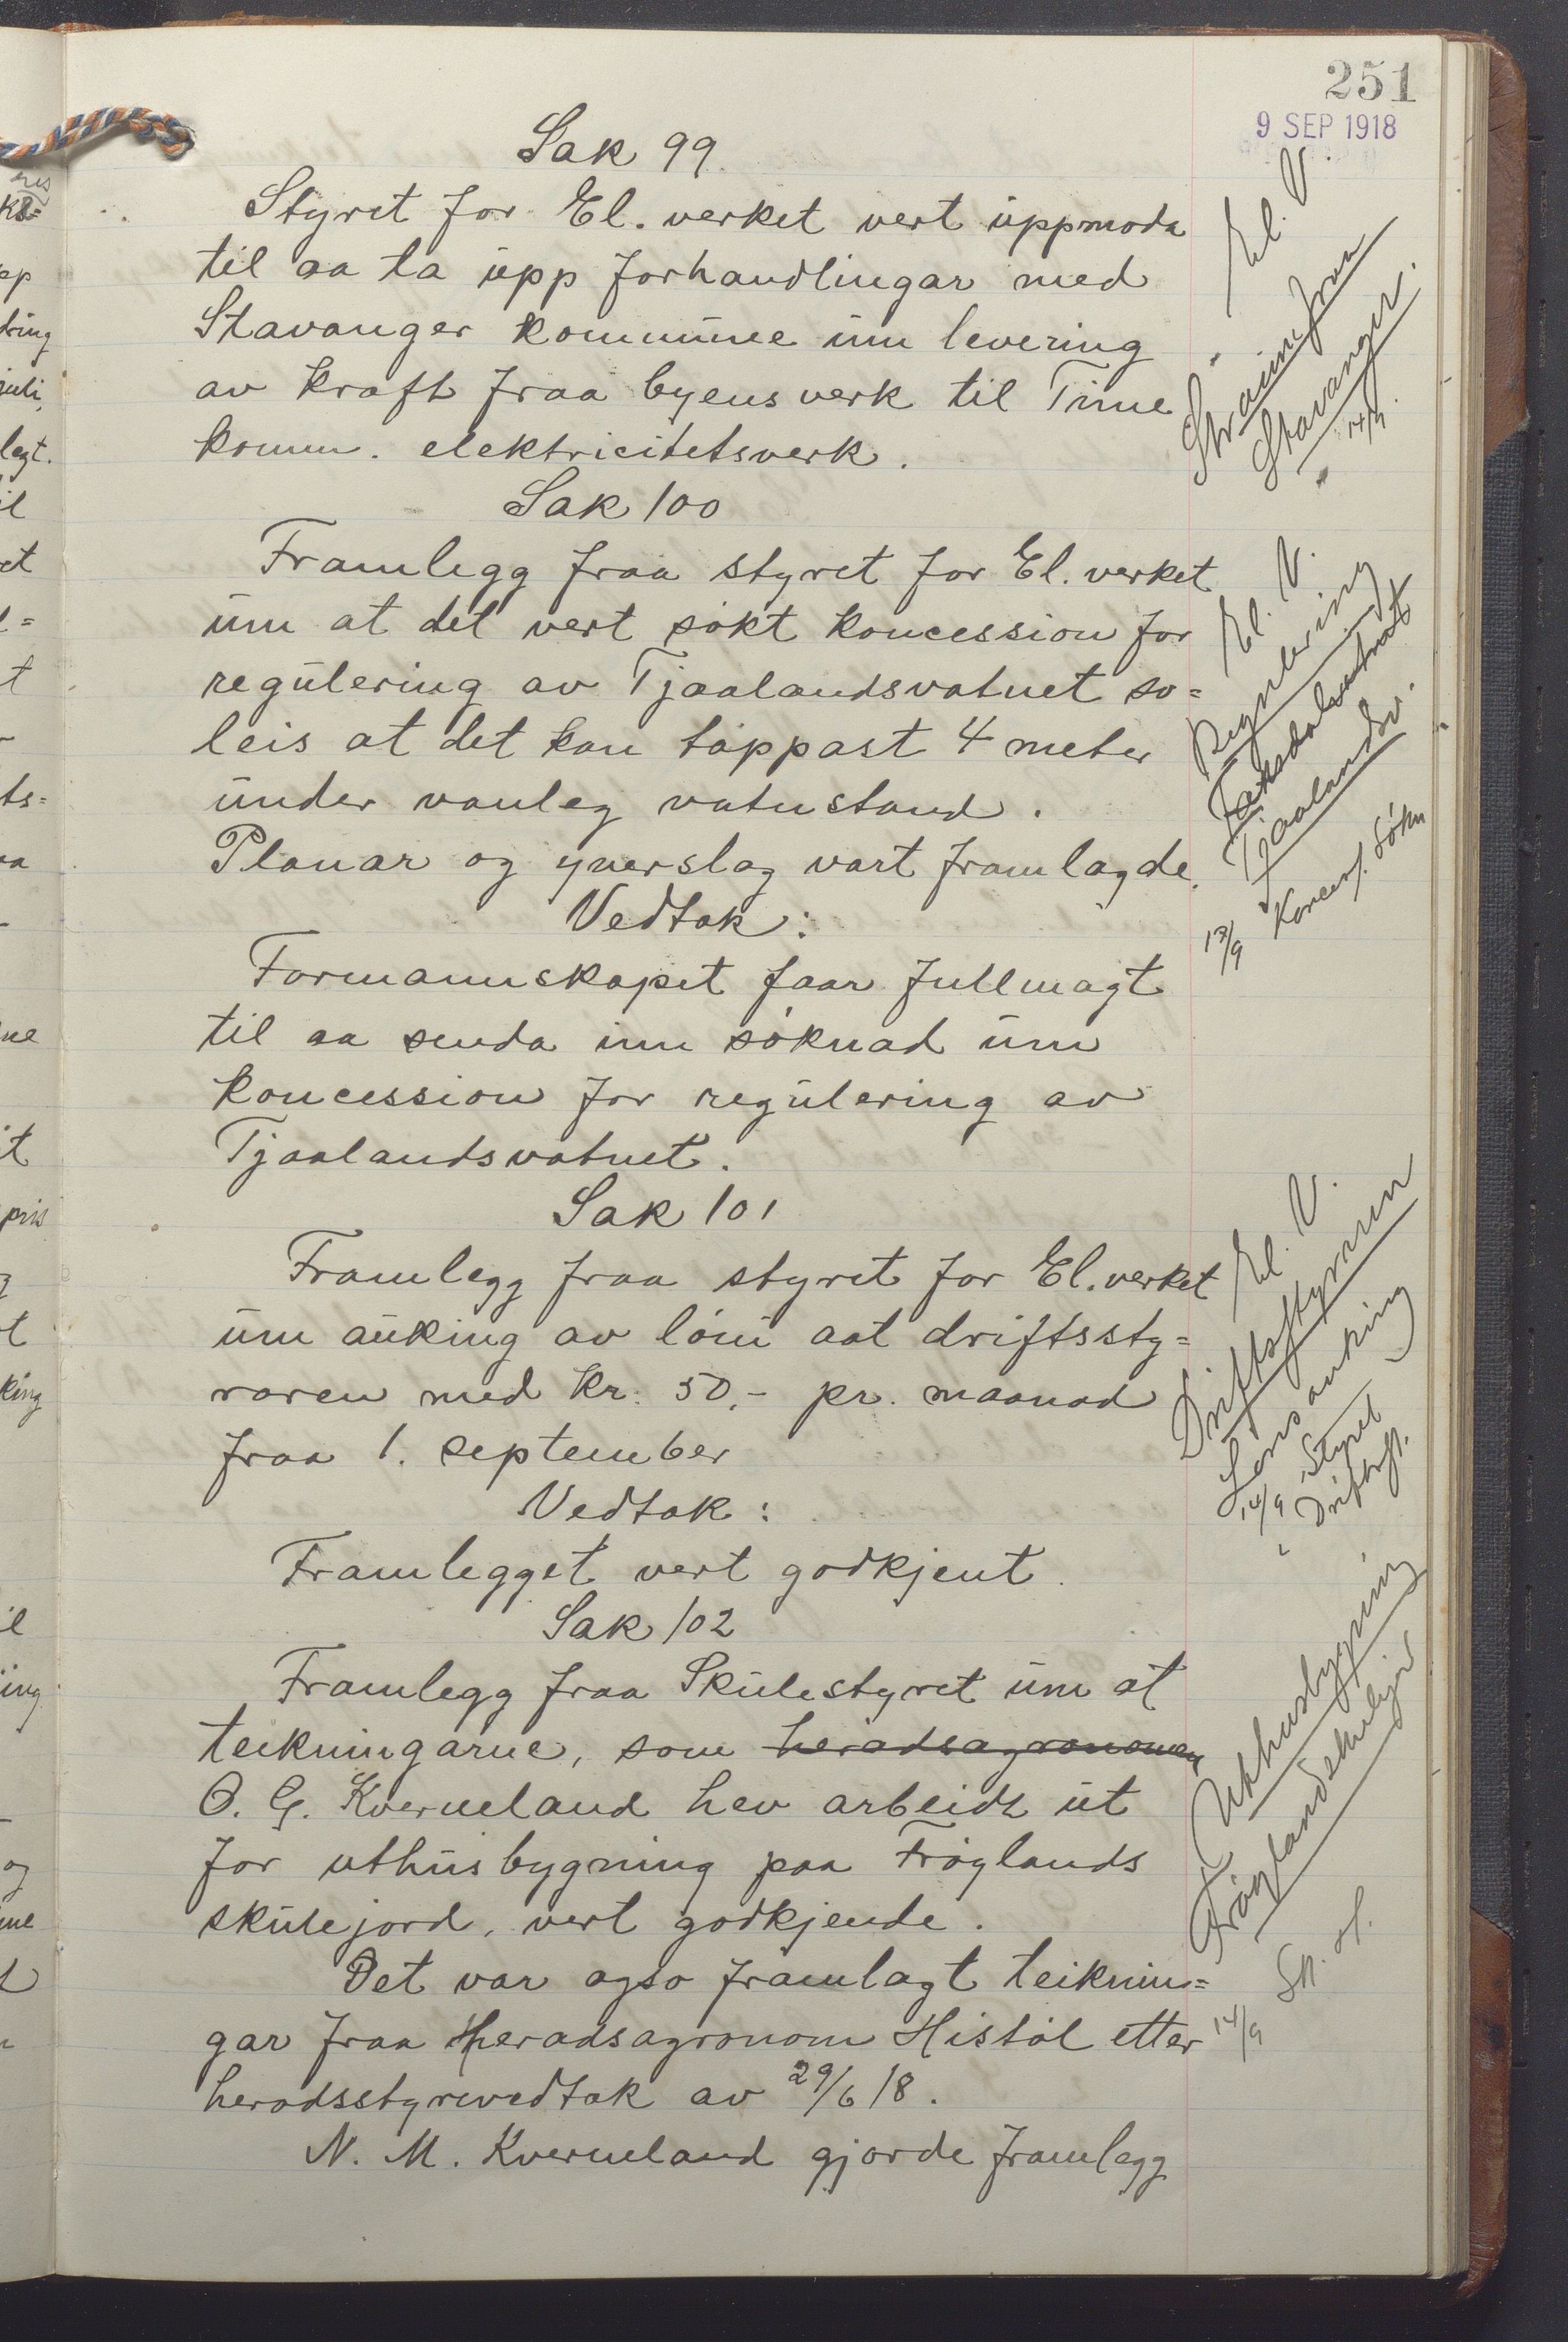 251
9 SEP 1918
Sak 99.
Styret for El. verket vert uppmoda
til aa ta upp forhandlingar med
Stavanger kommune um levering
av kraft fraa byens verk til Time
komm. elektricitetsverk.
El. V.
Straum fraa
Stavanger.
14/9.
Sak 100
Framlegg fraa styret for El. verket
um at det vert søkt koncession for
regulering av Tjaalandsvatnet so=
leis at det kan tappast 4 meter
under vanleg vatnstand.
Planar og yverslag vart framlagde.
Vedtak:
Formannskapet faar fullmagt
til aa senda inn søknad um
koncession for regulering av
Tjaalandsvatnet.
El. V.
Regulering
Tjaalandsv.
Koncess. søkn
13/9
Sak 101
Framlegg fraa styret for El. verket
um auking av løni aat driftssty=
raren med kr. 50,- pr. maanad
fraa 1. september
Vedtak:
Framlegget vert godkjent.
El. V.
Driftsstyraren
Lønsauking
14/9 Styret
Driftsst.
Sak 102
Framlegg fraa Skulestyret um at
teikningarne, som heradsagronomen
O. G. Kverneland hev arbeidt ut
for uthusbygning paa Frøylands
skulejord, vert godkjende.
Det var ogso framlagt teiknin=
gar fraa heradsagronom Histøl etter
heradsstyrevedtak av 29/6 18.
N. M. Kverneland gjorde framlegg
Uthusbygning
Frøylandskulejord
Sk. st.
14/9